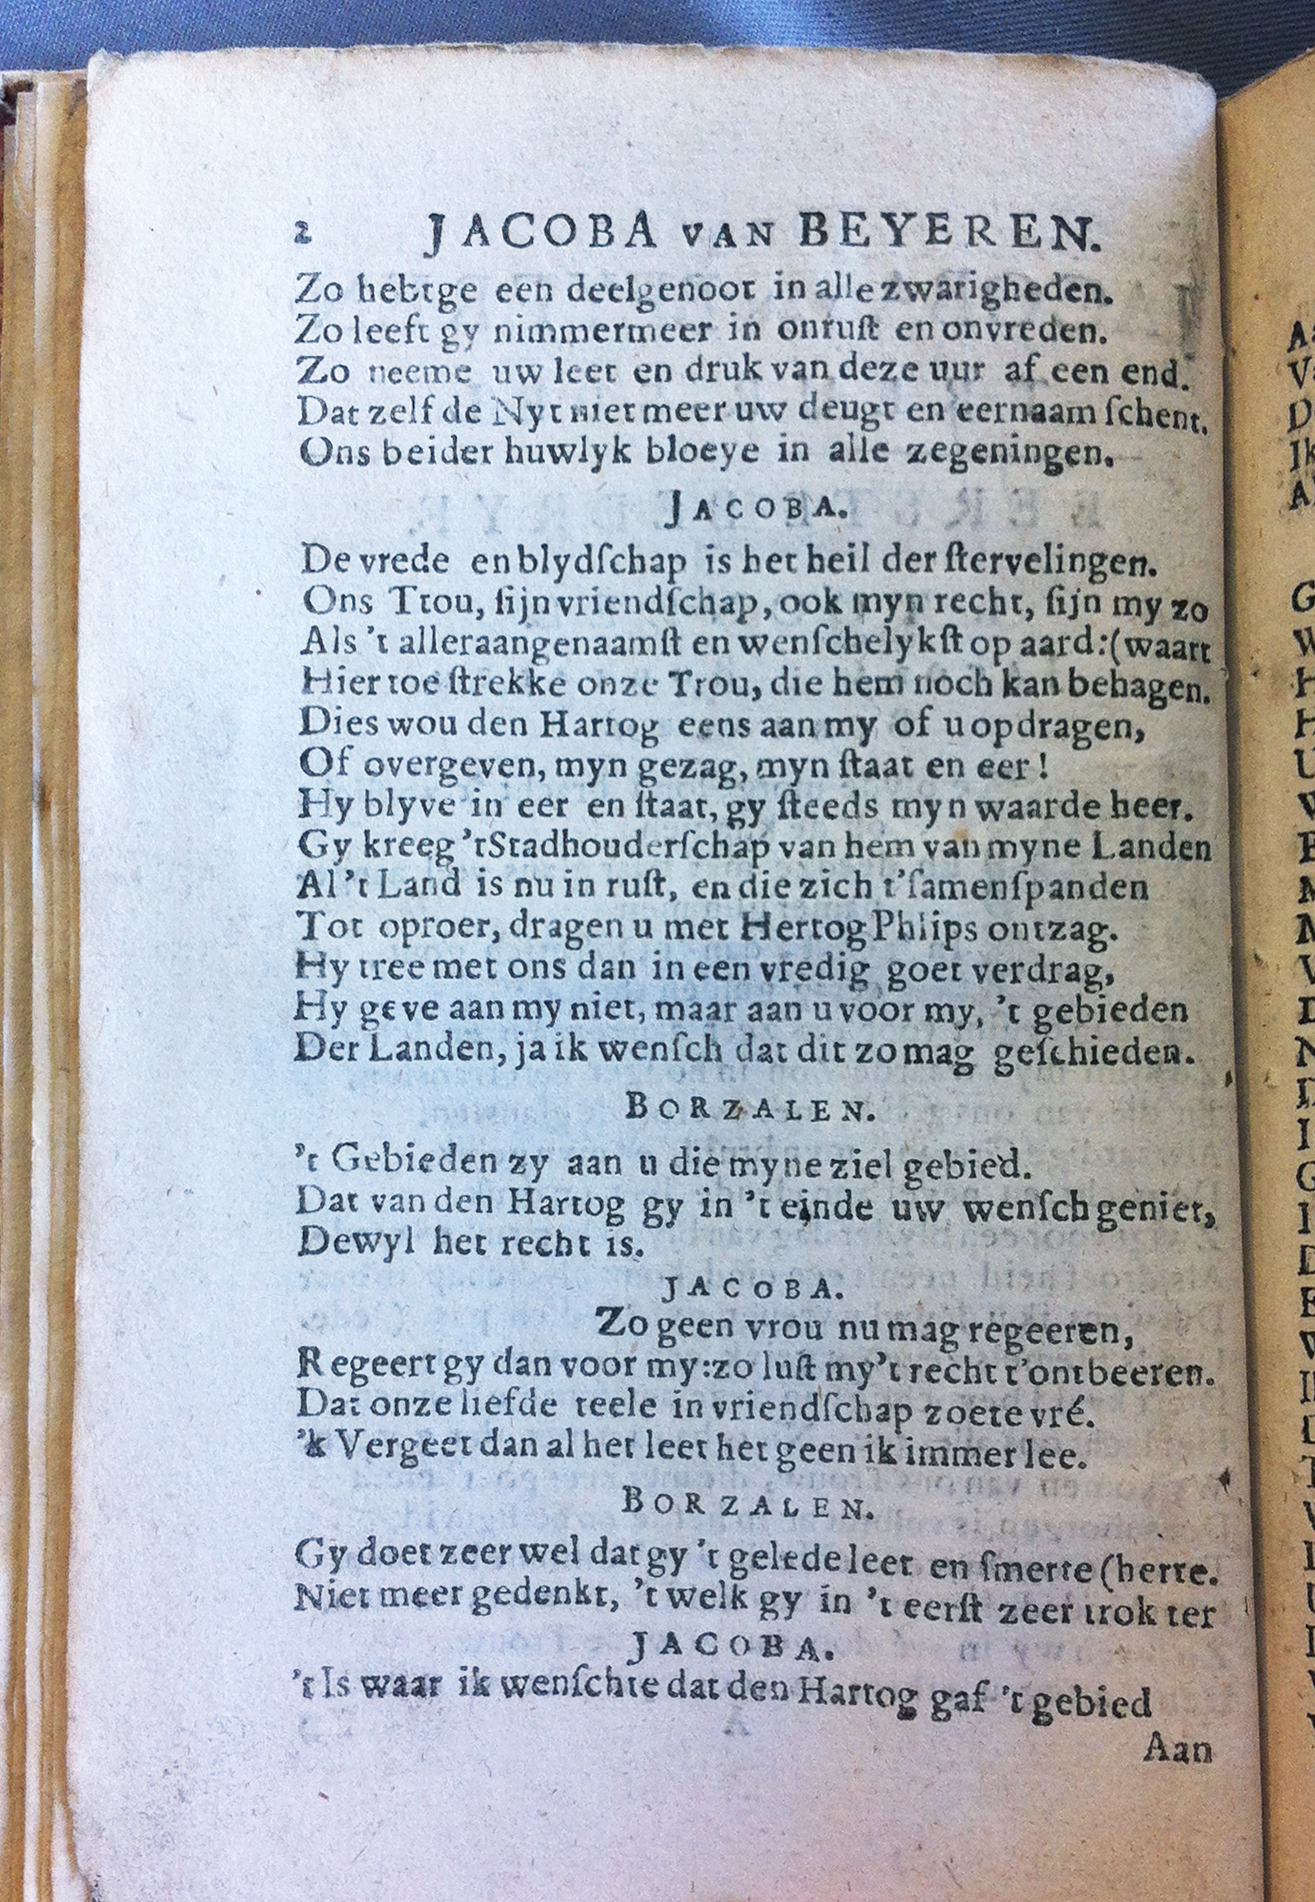 2 JACOBA VAN BEYEREN.
Zo hebtge een deelgenoot in alle zwarigheden.
Zo leeft gy nimmermeer in onruſt en onvreden.
Zo neeme uw leet en druk van deze uur af een end.
Dat zelf de Nyt niet meer uw deugt en eernaam ſchent.
Ons beider huwlyk bloeye in alle zegeningen.
JACOBA.
De vrede en blydſchap is het heil der ſtervelingen.
Ons Trou, ſijn vriendſchap, ook myn recht, ſijn my zo
Als 't alleraangenaamſt en wenſchelykſt op aard: (waart
Hier toe ſtrekke onze Trou, die hem noch kan behagen.
Dies wou den Hartog eens aan my of u opdragen,
Of overgeven, myn gezag, myn ſtaat en eer!
Hy blyve in eer en ſtaat, gy ſteeds myn waarde heer.
Gy kreeg 't Stadhouderſchap van hem van myne Landen
Al 't Land is nu in ruſt, en die zich t'ſamenſpanden
Tot oproer, dragen u met Hertog Phlips ontzag.
Hy tree met ons dan in een vredig goet verdrag,
Hy geve aan my niet, maar aan u voor my, 't gebieden
Der Landen, ja ik wenſch dat dit zo mag geſchieden.
BORZALEN.
't Gebieden zy aan u die myne ziel gebied.
Dat van den Hartog gy in 't einde uw wenſch geniet,
Dewyl het recht is.
JACOBA.
Zo geen vrou nu mag regeeren,
Regeert gy dan voor my: zo luſt my 't recht t'ontbeeren.
Dat onze liefde teele in vriendſchap zoete vré.
'k Vergeet dan al het leet het geen ik immer lee.
BORZALEN.
Gy doet zeer wel dat gy 't geledeleet en ſmerte (herte.
Niet meer gedenkt, 't welk gy in 't eerſt zeer trok ter
JACOBA.
't Is waar ik wenſchte dat den Hartog gaf 't gebied
Aan